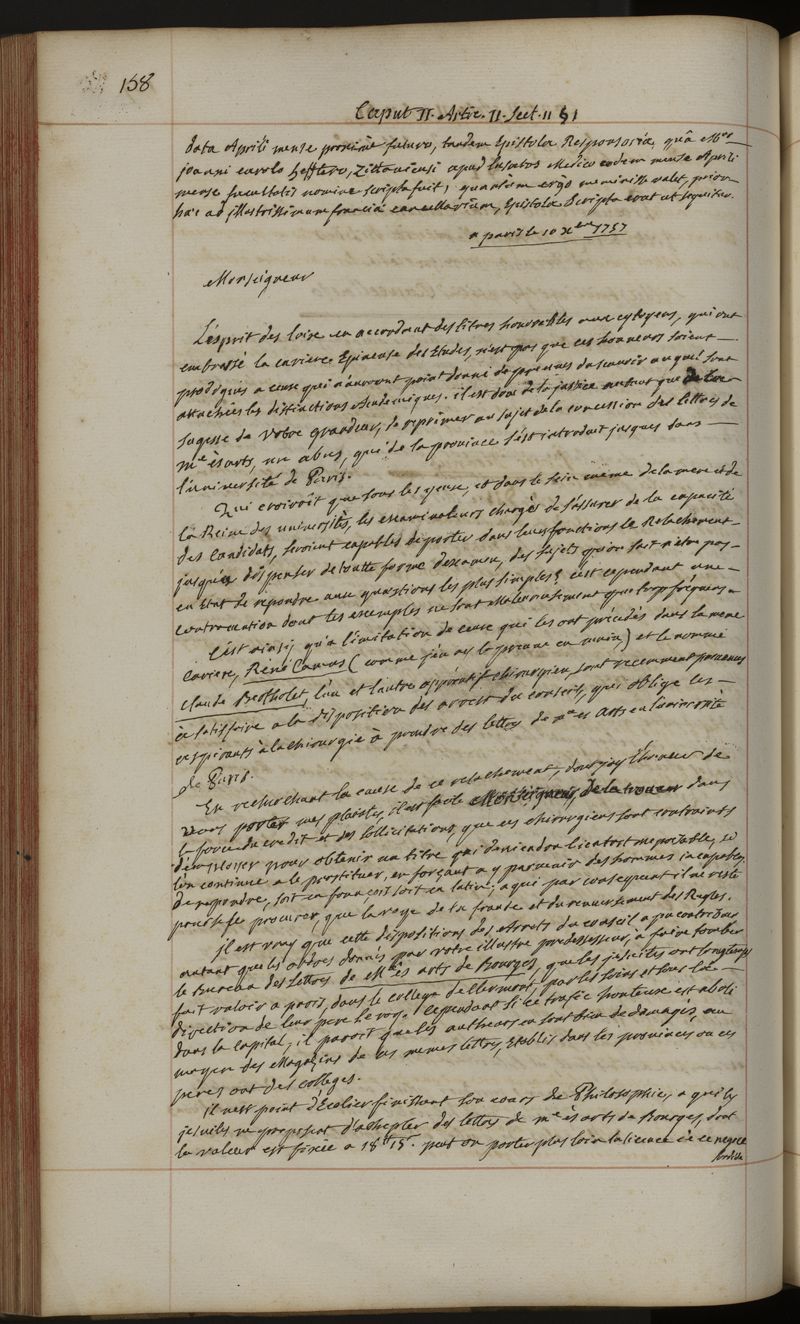 158
Caput II. Artic. II. Sect. 11 § 1
data Aprili mense proximè futuro, tandem Epistola Responsoria, quâ
joanni carolo hefftero, Zittaviensi apud lusatos Medico eodem mense Aprili
mense facultatis nomine scripta fuit; quantùm ergò meminisse valet, prior
hac ad illustrissimum franciæ cancellarium, Epistola scripta erat ut sequitur.
a paris le 10 xbre 1757
Monseigneur
L'esprit des loix en accordant des titres honorables aux cytoyens, qui ont
embrassé la cariere Epineuse des Etudes, n'est pas que ces honneurs soient
prodigués a ceux qui n'auront point donné de preuves du scavoir auquel sont
attachées les distinctions Academiques. il est donc de la justice autant que de la
sagesse de votre grandeur, de reprimer au sujet de la concession des lettres de
me ès arts, un abus, qui de la province s'est introduit jusques dans
l'université de Paris.
Qui croiroit que sous les yeux, et dans le sein même de la mere et de
la Reine des université, les examinateurs chargés de s'assurer de la capacité
des Candidats, seroient capables de porter dans leurs fonctions le Relachement
jusqu'à dispenser de toutte forme d'examen, des sujets qu'on sait n'etre pas
en Etat de repondre aux questions les plus simples? c'est cependant une
contravention dont les exemples ne sont Malheureusement que trop fréquens
C'est ainsi, qu'a l'imitation de ceux qui les ont précédés dans la meme
Cariere, Réné Camus (comme j'en ai la preuve en main) et le nommé
Claude Bertholet, l'un et l'autre chirurgien, sont recemment parvenus
à satisfaire a la disposition des arrets du conseil, qui oblige les
aspirants à la chirurgie à prendre des lettres de me es Arts en l'université
de Paris.
En recherchant la cause de ce relachement, dont j'ay l'honneur de
vous porter mes plaintes, il est facile Monseigneur, de la trouver dans
la force du credit et des sollicitations, que ces chirurgiens sont contraints
d'employer pour obtenir un titre qui deviendra bientost meprisable, si
l'on continue a le prostituer, en forçant a y parvenir des hommes incapables
de repondre, soit en françois soit en latin; a qui par consequent il ne reste
pour se le procurer, que la voye de la fraude et du renversement des Regles.
Il est vray que cette dispositions des arrets du conseil a pu contribuer
autant que les ordres donnés par votre illustre predecesseur, a faire tomber
le Bureau des Lettres de Mes ès arts de Bourges, que les jesuites ont longtemps
fait valoir a paris, dans le college de Clermont, par les soins et sous la
direction de leur pere le roy. Cependant si ce trafic honteux est aboli
dans la Capital, il paroit que les autheurs en sont bien dedomagés, au
moyen des Magazins de ces memes lettres, Etablis dans les provinces ou ces
peres ont des colleges.
Il n'est point d'Ecolier finissant son cours de Philosophie, a qui les
jesuites ne proposent d'achepter des lettres de me ès arts de Bourges, dont
la valeur est fixée a 18# 15s. peut on porter plus loin la licence de ce negoce